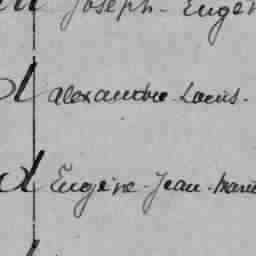 Joseph - Eugèn
d Alexandre - Louis -
d Eugène - Jean - Marie